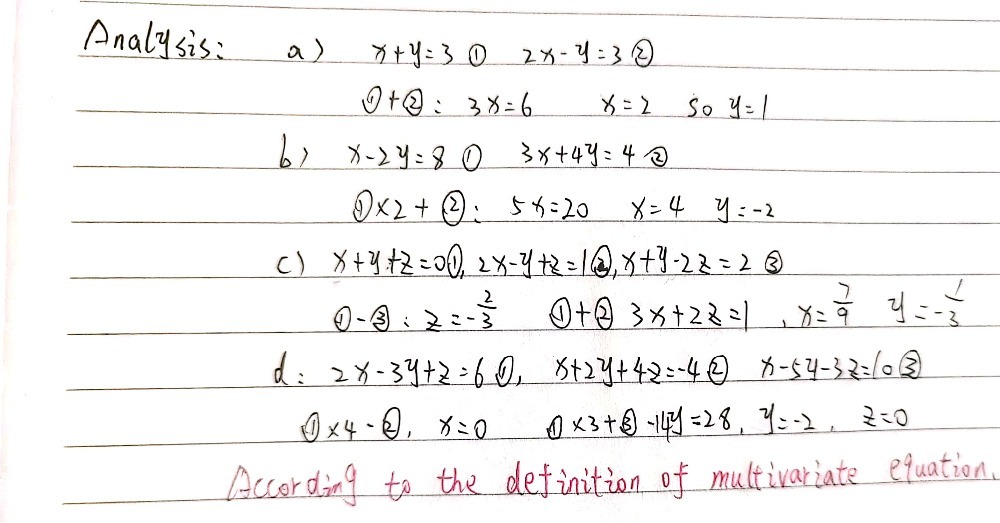 Analysis: a) x+y=3 ① 2x-y=3 ②
①+②: 3x=6 x=2 so y=1
b) x-2y=8 ① 3x+4y=4 ②
①×2+②: 5x=20 x=4 y=-2
c) x+y+z=0①, 2x-y+z=1②, x+y-2z=2 ③
①-③: z=-2/3 ①+② 3x+2z=1, x=7/9 y=-1/3
d: 2x-3y+z=6①, x+2y+4z=-4② x-5y-3z=10③
①×4-②, x=0 ①×3+③ -14y=28, y=-2, z=0
According to the definition of multivariate equation.